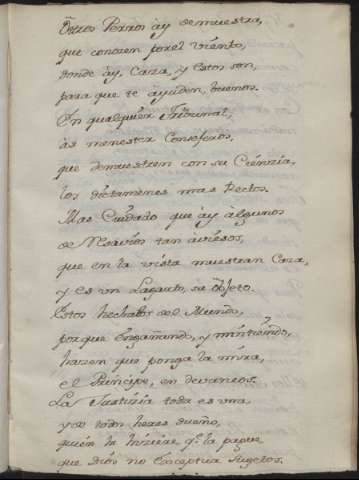 Otros Perros ay de muestra,
que conozen por el viento,
donde ay Caza, y estos son,
para que te ayuden, buenos.
En qualquier Tribunal,
as menester Consejeros,
que demuestren con su Ciencia,
los dictamenes mas Rectos.
Mas Cuidado que ay algunos
de Resavios tan aviesos,
que en la vista muestran Caza,
y es un Lagarto, su objeto.
Estos hechalos del Mundo,
porque Engañando, y mintiendo,
hazen que ponga la mira,
el Principe, en devaneos.
La Justizia toda es una
y de todos heres dueño,
quien la hiziere qe. la pague
que Dios no Exceptua Sugetos.